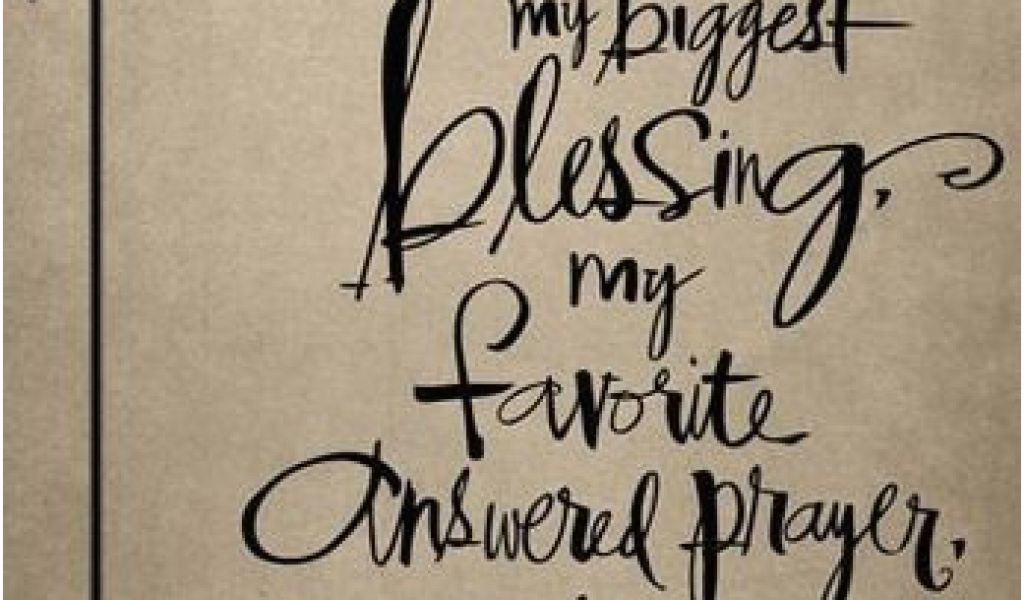 my biggest
blessing,
my
favorite
answered prayer,